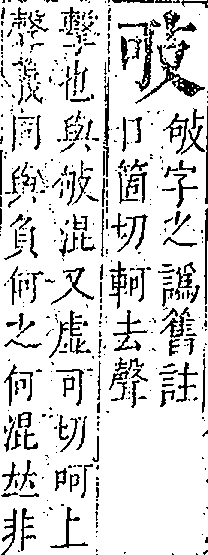 㪃
敂字之譌舊註
口箇切軻去聲
擊也與敂混又虛可切呵上
聲義同與負何之何混𠀤非